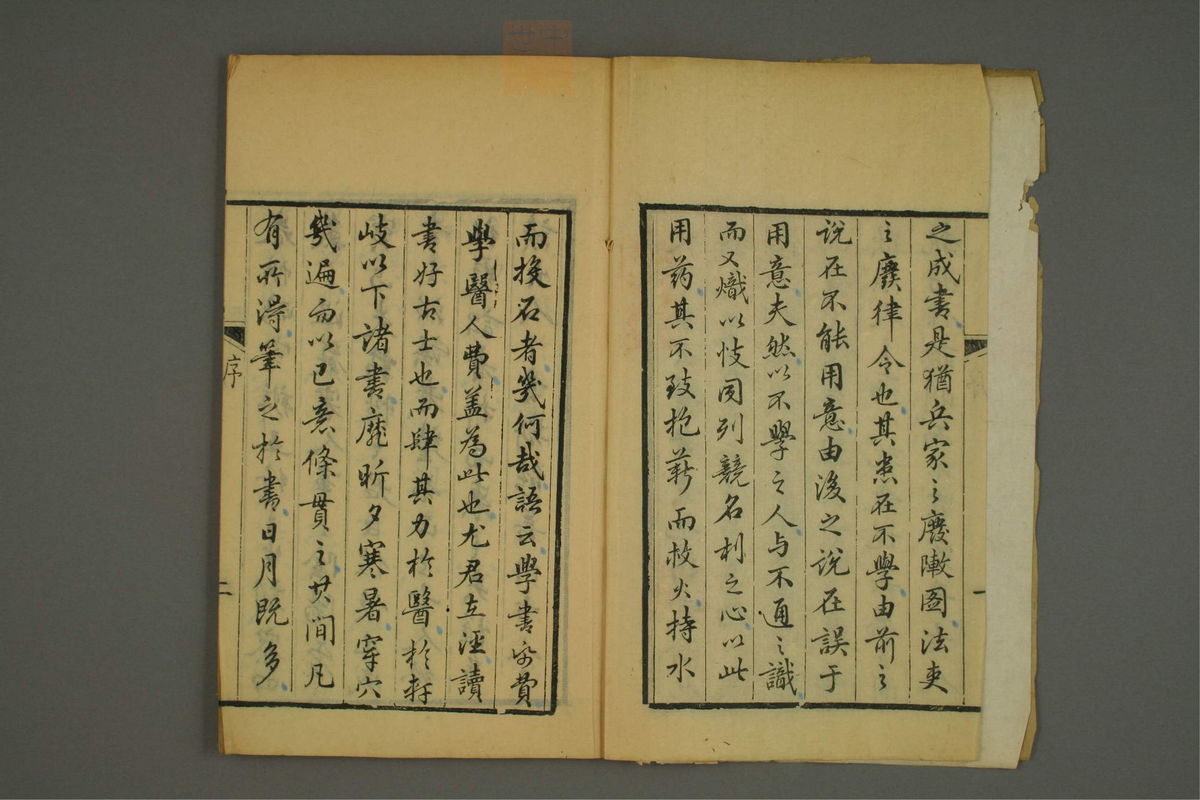 之成書是猶兵家之廢陳圖法吏
之廢律令也其患在不學由前之
說在不能用意由後之說在誤于
用意夫然以不學之人与不通之識
而又熾以忮同列競名利之心以此
用药其不致抱薪而救火持水
一
而投石者幾何哉語云學書帋費
學醫人費盖為此也尤君在涇讀
書好古士也而肆其力於醫於軒
岐以下諸書靡昕夕寒暑穿穴
幾遍而以已意條貫之其間凡
有所得筆之於書日月既多
序
二